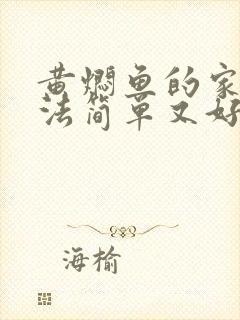 黄焖鱼的家
法简单又好
海榆